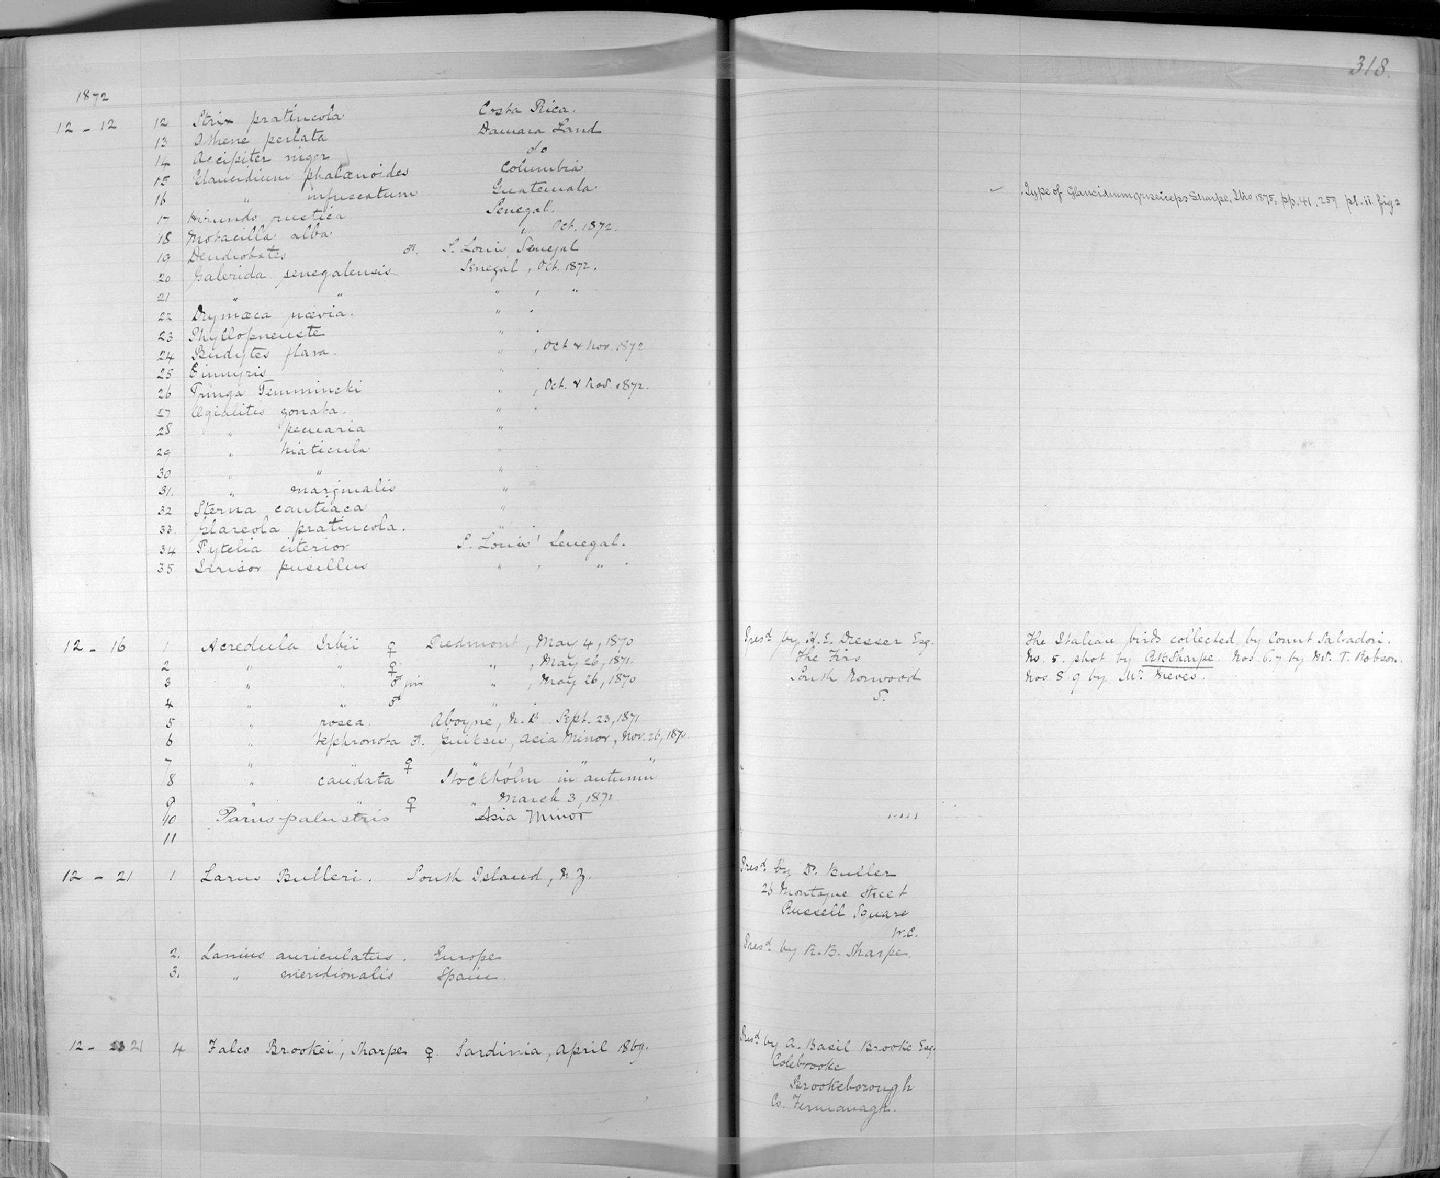 318.
1872
12 - 12 12 Strix pratincola Costa Rica.
13 Athene perlata Damara Land
14 Accipiter niger do
15 Glaucidium phalænoides Columbia
16 " infuscatum Guatemala Type of Glaucidium griseiceps Sharpe, Ibis 1875, pp. 41, 259 pl. ii. fig 2
17 Hirundo rustica Senegal.
18 Motacilla alba " Oct. 1872.
19 Dendrobates S. Louis, Senegal
20 Galerida senegalensis Senegal, Oct. 1872.
21 " " " , "
22 Drymœca nævia. " "
23 Phyllopneuste " "
24 Budytes flava. " , Oct & Nov. 1872
25 Cinnyris "
26 Tringa Temmincki " , Oct. & Nov. 1872.
27 Ægialitis zonata. " "
28 " pecuaria "
29 " hiaticula "
30 " " "
31. " marginalis "
32 Sterna cantiaca "
33. Glareola pratincola. "
34 Pytelia citerior S. Louis, Senegal.
35 Serisor pusillus " , " .
12 - 16 1 Acredula Irbii ♀ Piedmont, May 4, 1870 Presd by H. E. Dresser Esq. The Italian birds collected by Count Salvadori.
2 " " ♀ " , May 26, 1871. The Firs No. 5. shot by R B Sharpe. Nos 6. 7 by Mr. T. Robson.
3 " " ♂ " , May 26, 1870 South Norwood Nos 8 9 by Mr. Meves.
4 " " ♂ " . S.
5 " rosea. Aboyne, N. B. Sept. 23, 1871
6 " tephronota Asia Minor, Nov. 26, 187
7 " " ♀ " " "
8 " caudata Stockholm in autumn
9 " " ♀ " March 3, 1871
10 Parus palustris Asia Minor
11
12 - 21 1 Larus Bulleri. South Island, N Z. Presd by Dr. Buller
Montague Street
Russell Square
W.C.
2. Lanius auriculatus. Europe Presd by R. B. Sharpe.
3. " meridionalis Spain.
12 - 21 4 Falco Brookei, Sharpe ♀. Sardinia, April 1869. Presd by A. Basil Brooke Esq.
Colebrooke
Brookeborough
Co. Fermanagh.